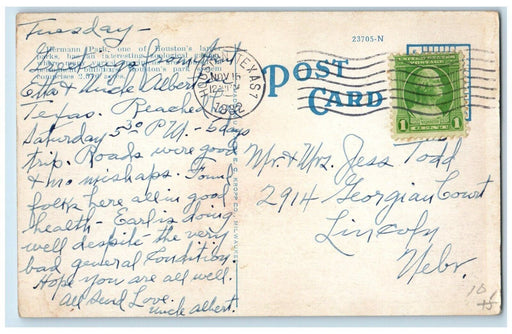 Tuesday-
Hermann Park, one of Houston's
Greetings from Aunt
Etta & Uncle Albert
Texas. Reached
Saturday 5 30 P.M. - 6 days
trip. Roads were good
& no mishaps. Found
folks here all in good
health - Earl is doing
well despite the very
bad general condition
Hope you are all well.
All send Love.
Uncle Albert.
23705-N
POST
CARD
HOUSTON, TEXAS
NOV 15
1932
UNITED STATES
POSTAGE
1
1
Mr. & Mrs. Jess Todd
2914 Georgian Court
Lincoln
Nebr.